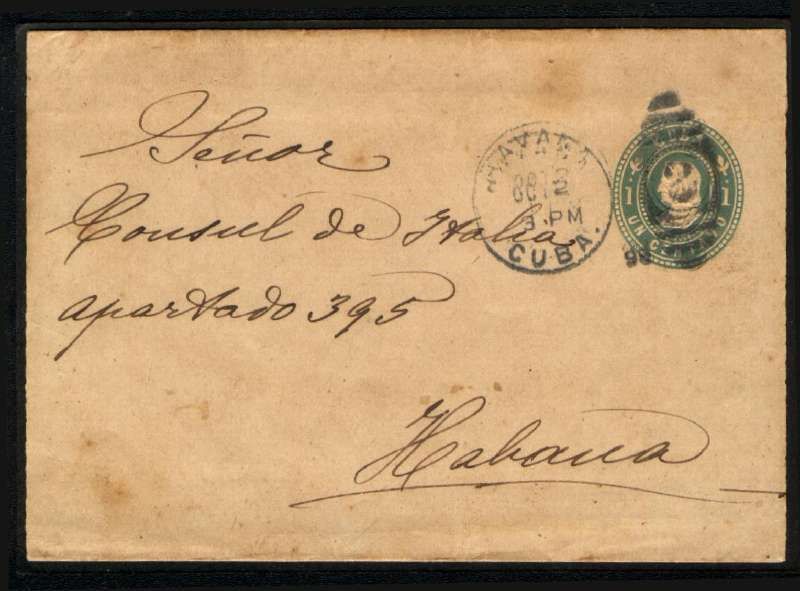 Señor
Consul de Italia
apartado 395
Habana
HAVANA
OCT
2
3 PM
CUBA.
1 UN C O 1